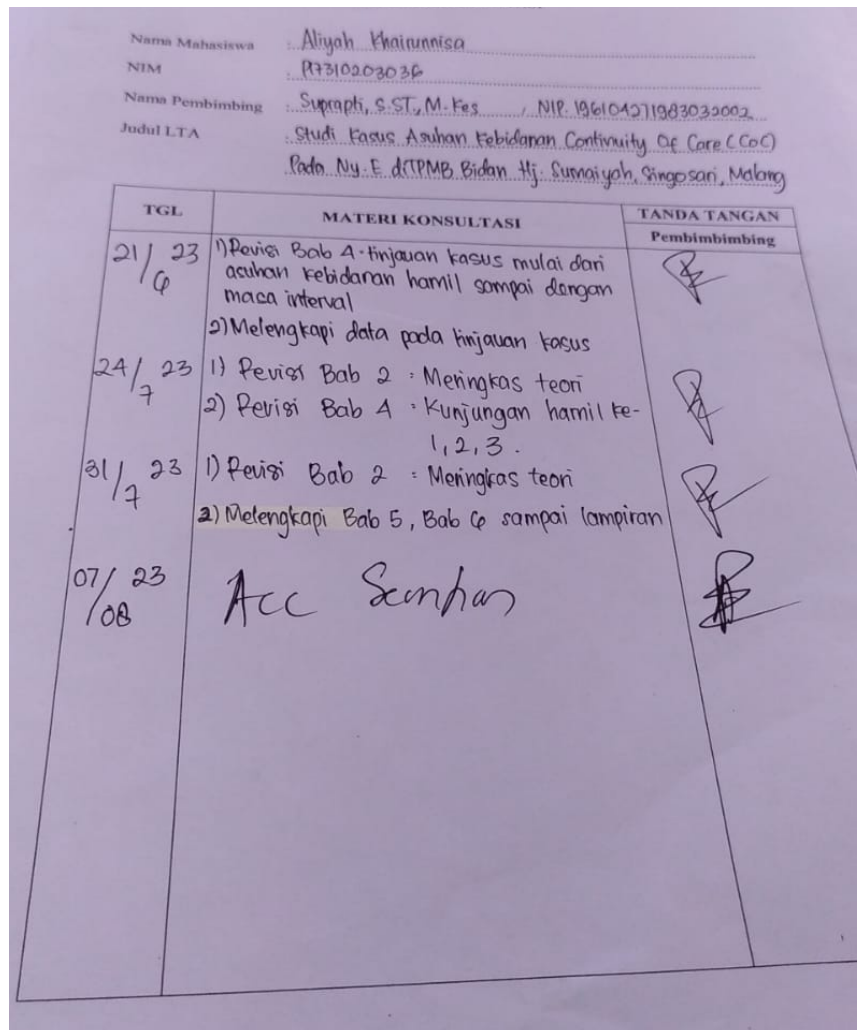 Nama Mahasiswa : Aliyah Khairunnisa
NIM : P17310203036
Nama Pembimbing : Suprapti, S.ST., M.Kes , NIP. 196104271983032002
Judul LTA : Studi Kasus Asuhan Kebidanan Continuity Of Care (CoC)
Pada Ny. E di TPMB Bidan Hj. Sumaiyah, Singosari, Malang
TGL MATERI KONSULTASI TANDA TANGAN
Pembimbimbing
21/6 23 1) Revisi Bab 4 · tinjauan kasus mulai dari
asuhan kebidanan hamil sampai dengan
masa interval
2) Melengkapi data pada tinjauan kasus
24/7 23 1) Revisi Bab 2 : Meringkas teori
2) Revisi Bab 4 : Kunjungan hamil ke-
1, 2, 3.
31/7 23 1) Revisi Bab 2 : Meringkas teori
2) Melengkapi Bab 5, Bab 6 sampai lampiran
07/08 23 Acc Semhas